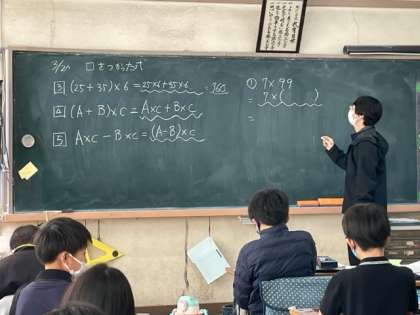 3 (25+35)×6 = 25×6+35×6 = 360
4 (A+B)×C = A×C+B×C
5 A×C-B×C=(A-B)×C
① 7×99
= 7×( )
=